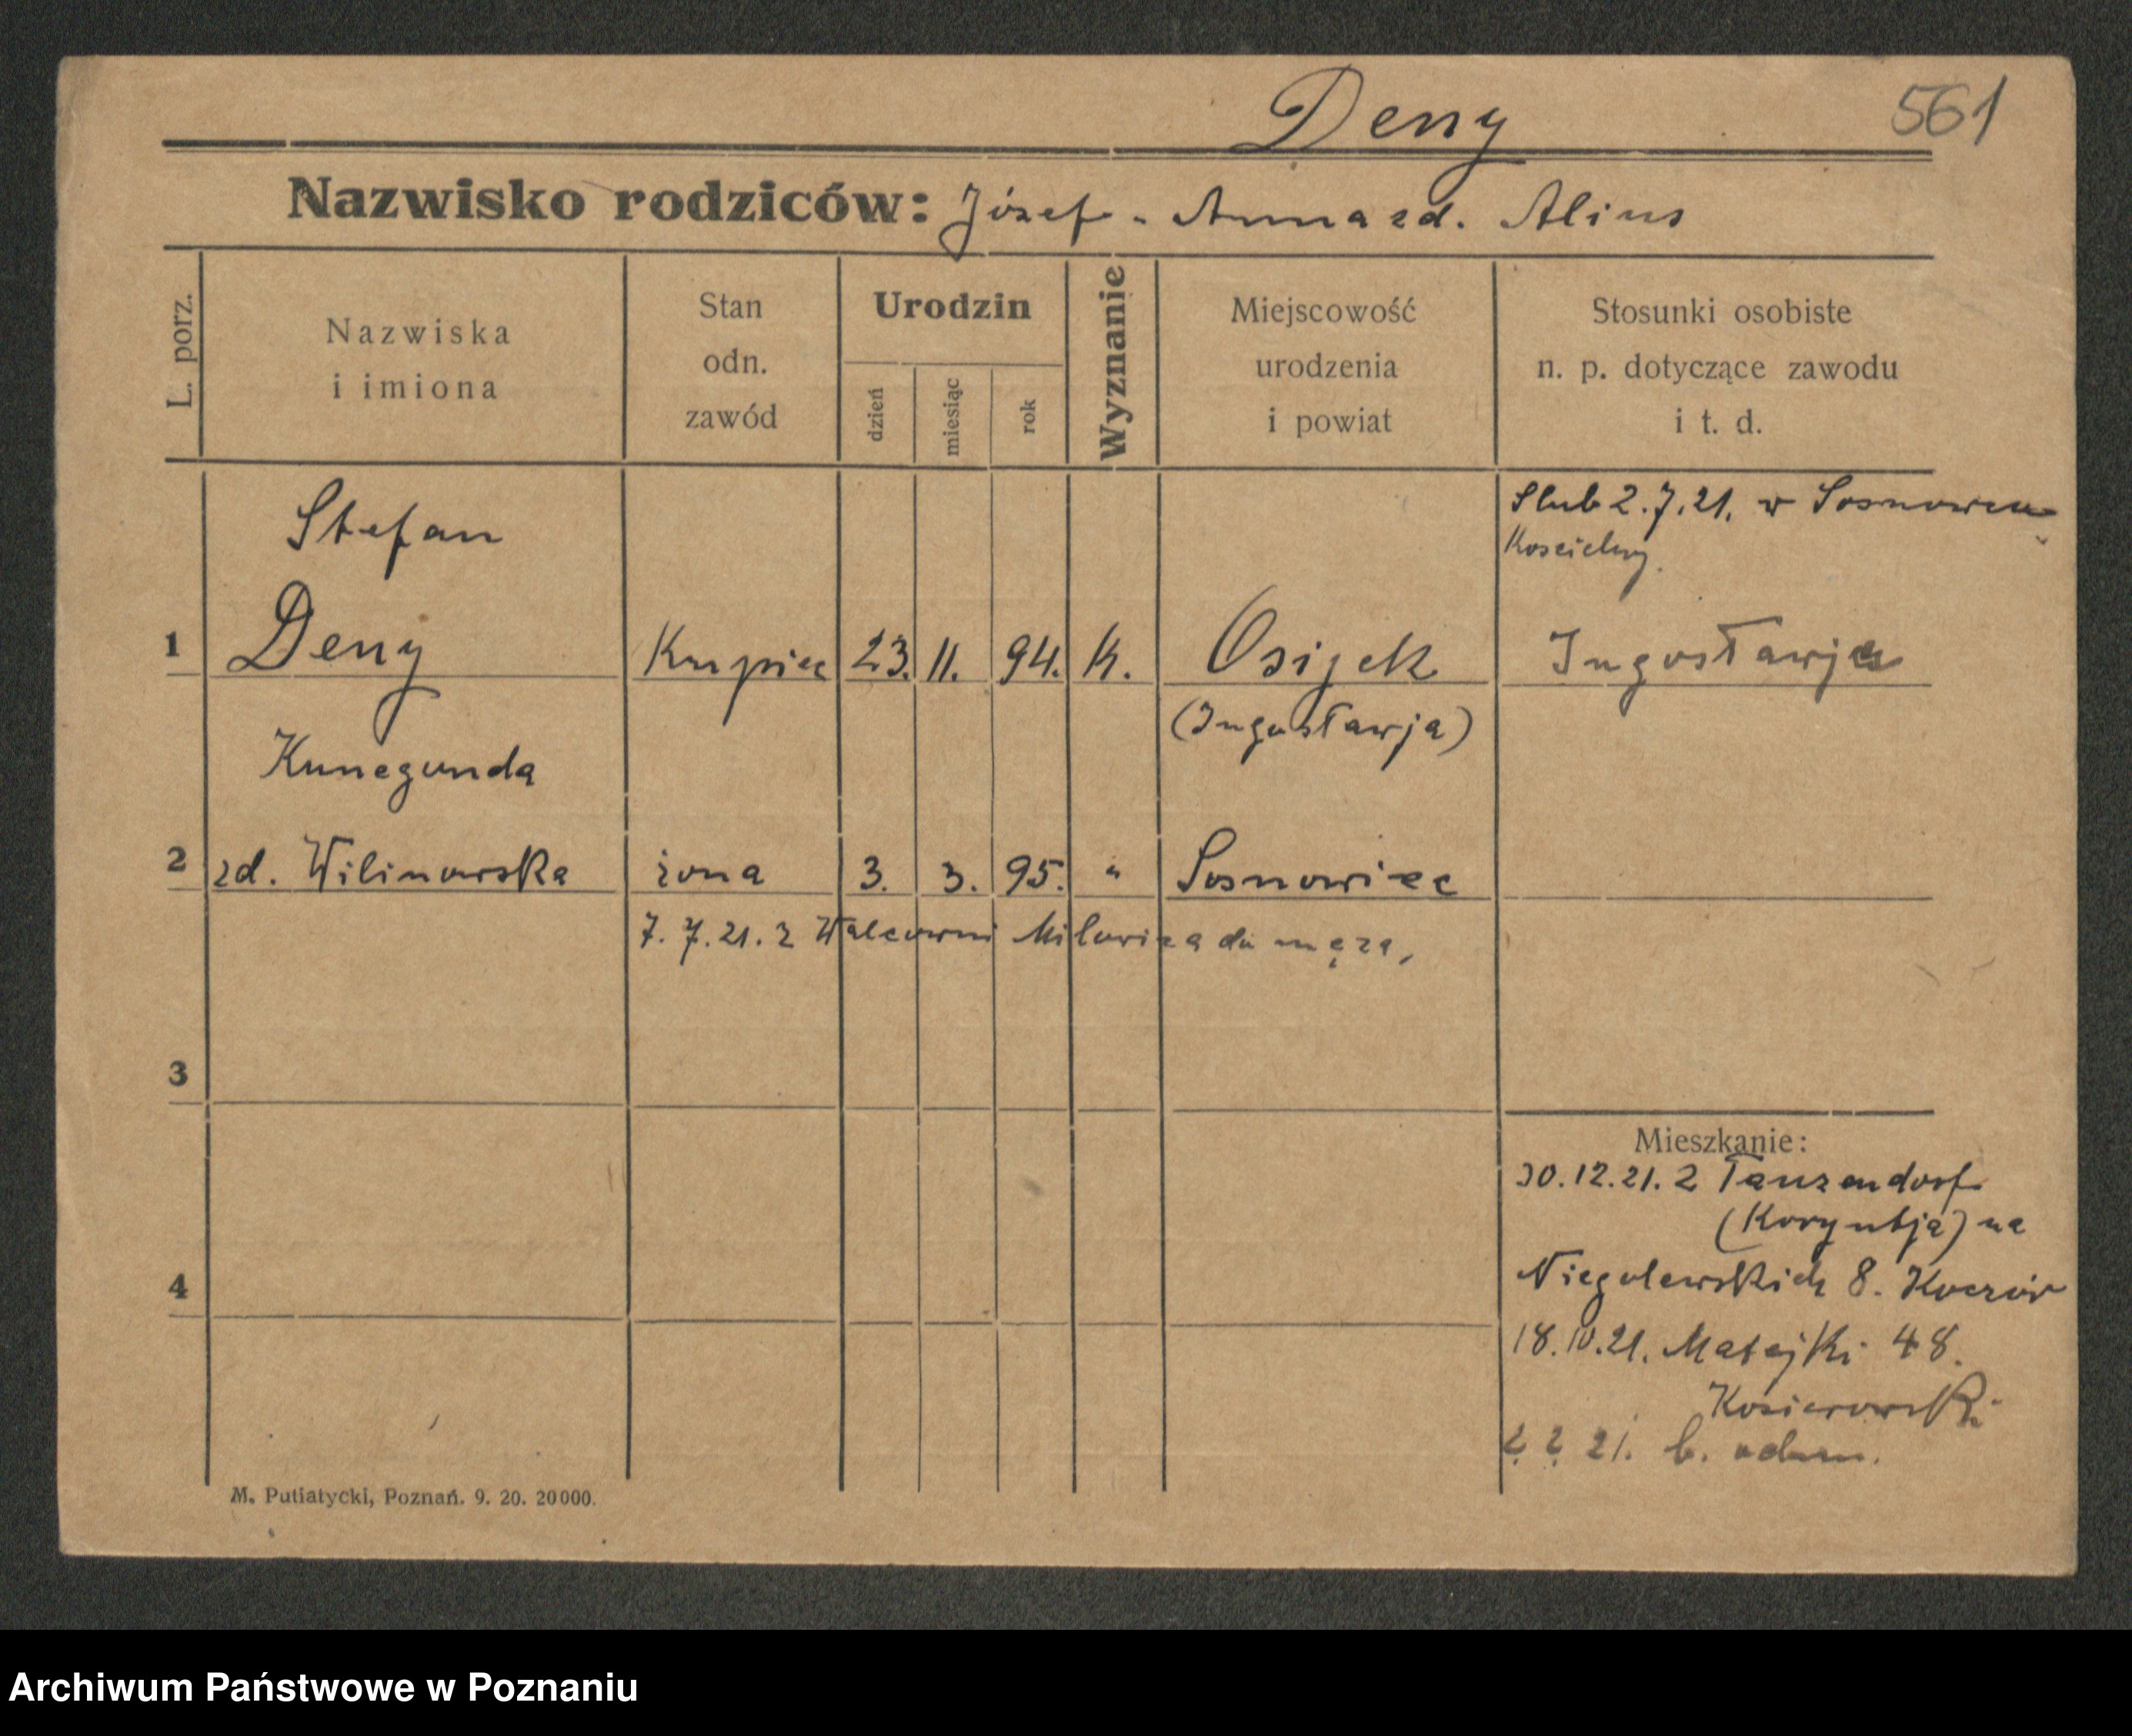 Deny
561
Nazwisko rodziców: Józef - Anna zd. Alius
L. porz.
Nazwiska
i imiona
Stan
odn.
zawód
Urodzin
dzień
miesiąc
rok
Wyznanie
Miejscowość
urodzenia
i powiat
Stosunki osobiste
n. p. dotyczące zawodu
i t. d.
Slub 2.7.21. w Sosnowcu
Koscielny.
Stefan
1 Deny Kupiec 23. 11. 94. K. Osijek Jugosławja
(Jugosławja)
Kunegunda
2 zd. Wilinowska żona 3. 3. 95. " Sosnowiec
7.7.21. z Walcowni Milowica do męża,
3
Mieszkanie:
30.12.21. z Tanzendorf
(Koryntja) na
4
Niegolewskich 8.
18.10.21. Matejki 48.
21. b.
M. Putiatycki, Poznań. 9. 20. 20000.
Archiwum Państwowe w Poznaniu